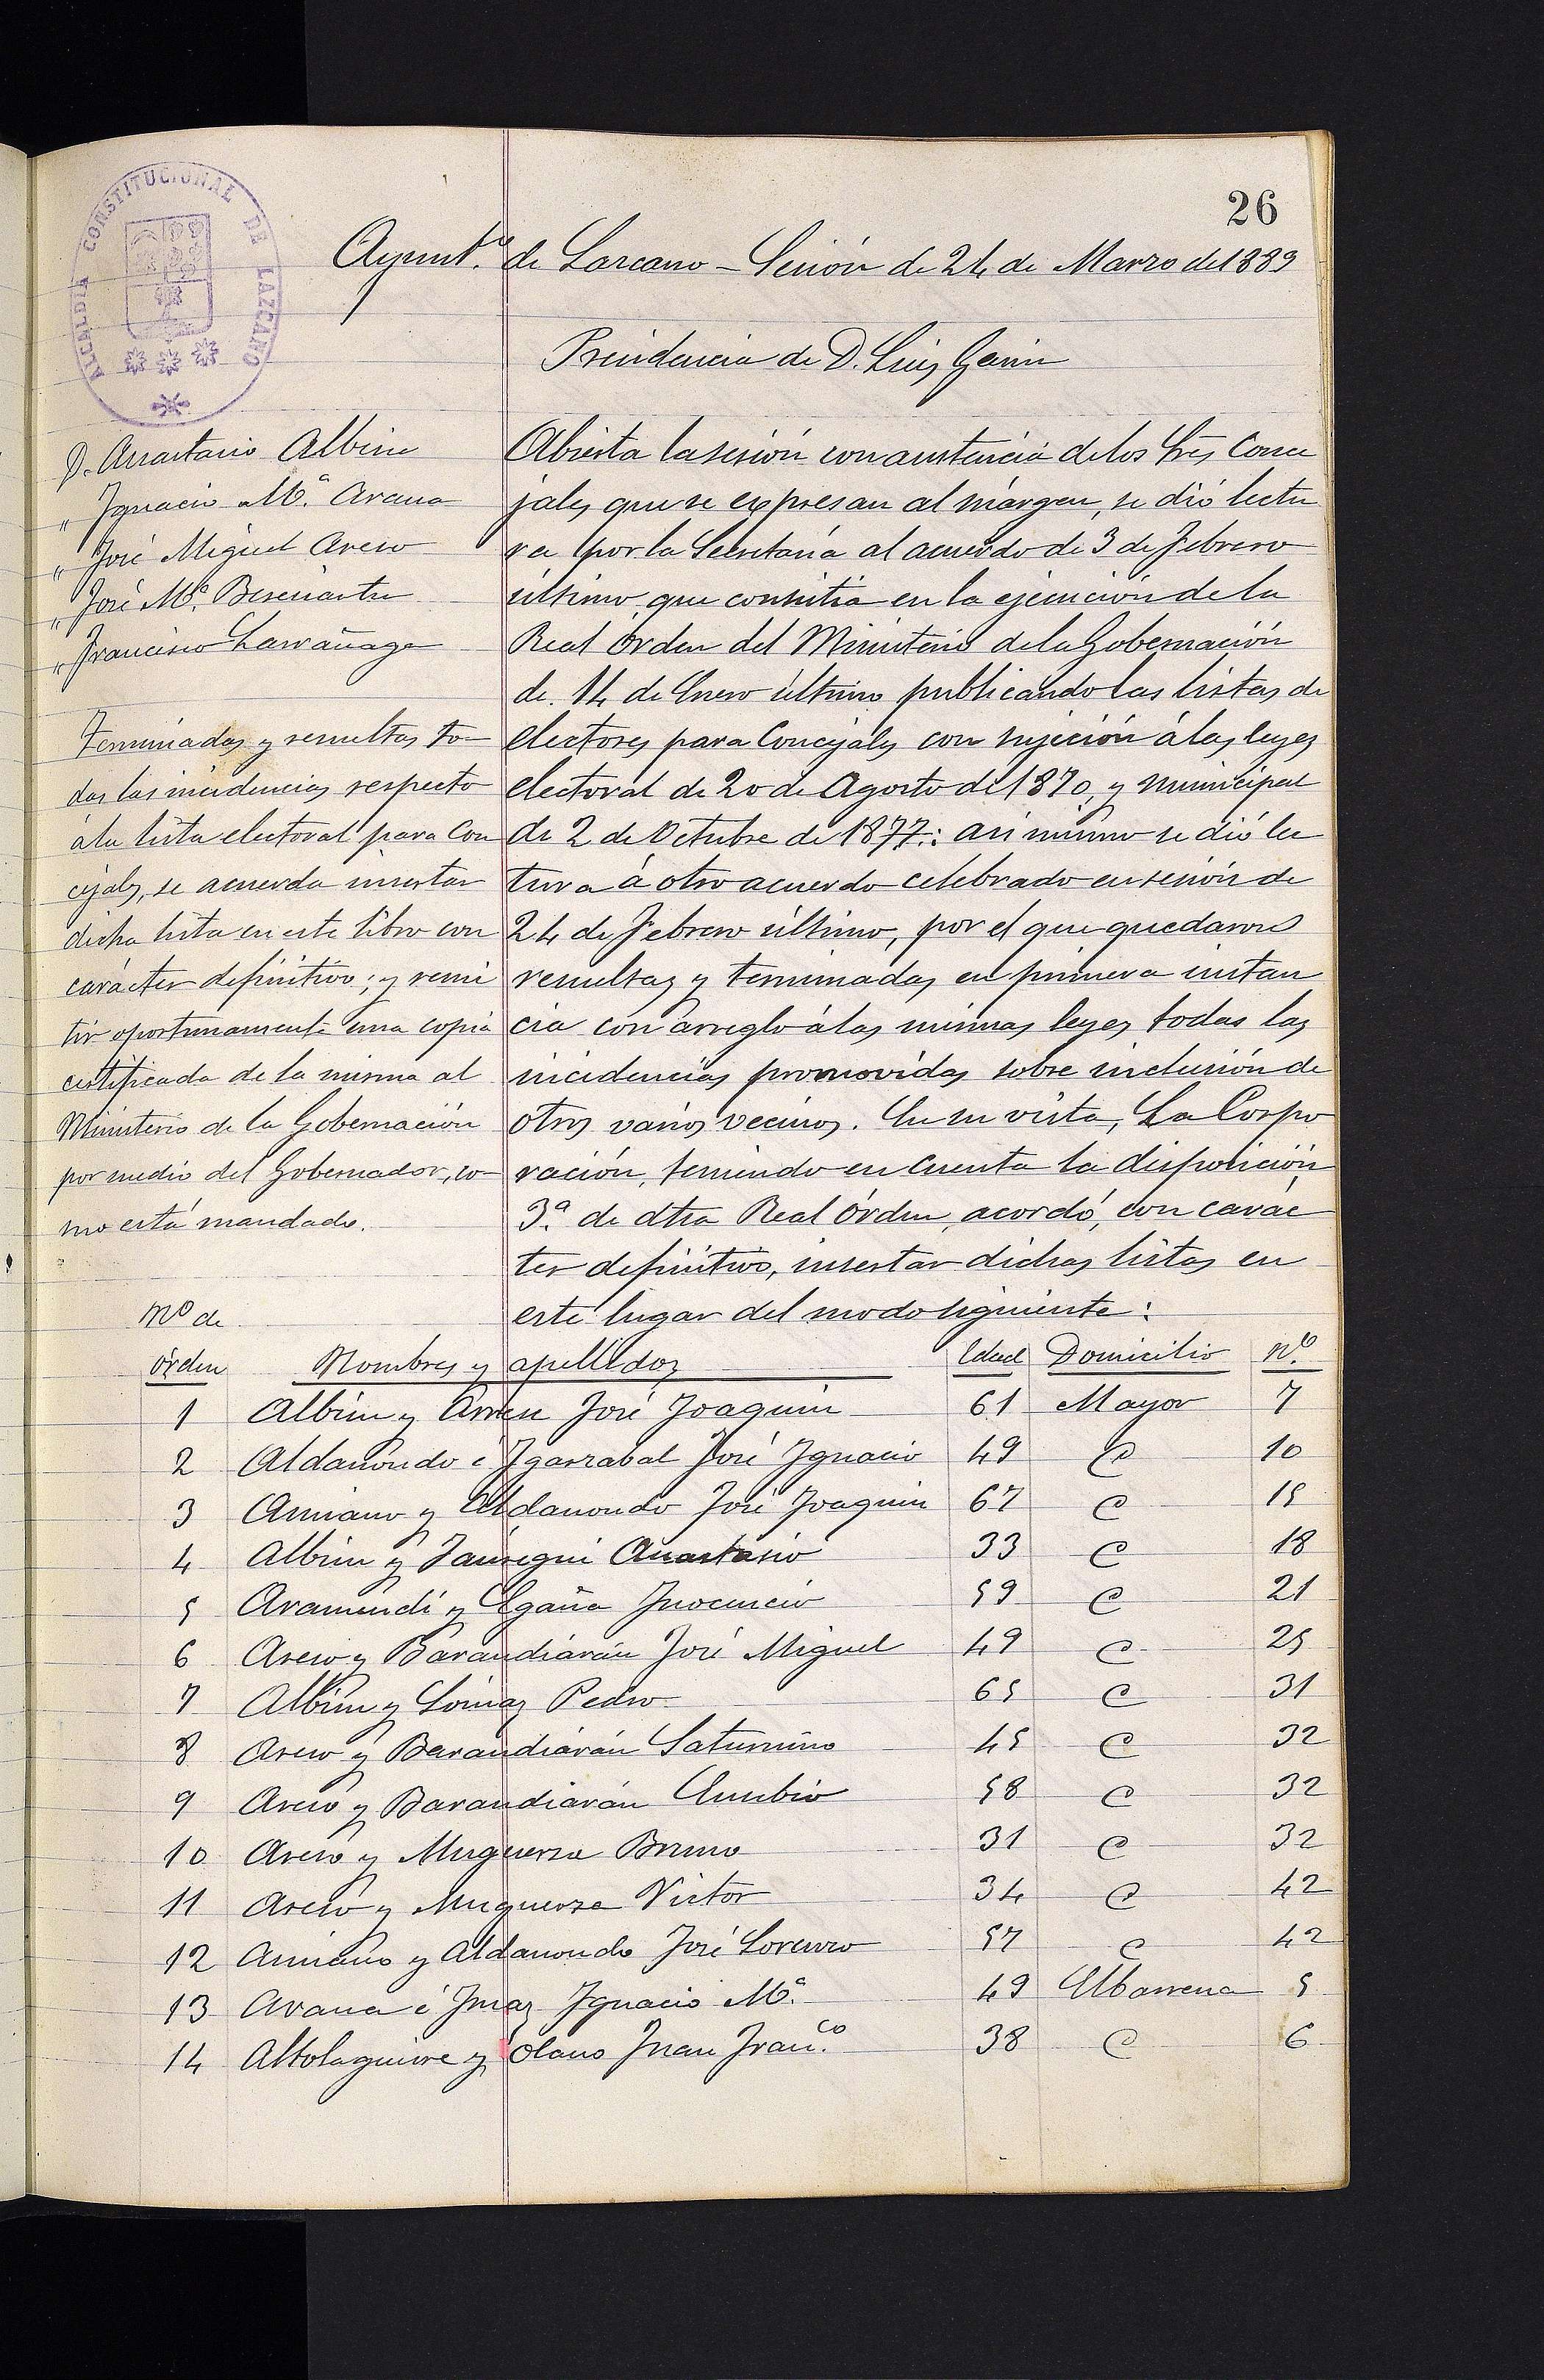 26
ALCALDIA CONSTITUCIONAL DE LAZCANO
Ayunt.º de Lazcano - Sesión de 24 de Marzo de 1889
Presidencia de D. Luis Gerin
D. Anastasio Albisu
" Ignacio M.ª Arana
" José Miguel Areso
" José M.ª Bereciartu
" Francisco Larrañaga
Terminadas y resueltas to-
das las incidencias respecto
á la lista electoral para Con
cejales, se acuerda insertar
dicha lista en este libro con
carácter definitivo; y remi
tir oportunamente una copia
certificada de la misma al
Ministerio de la Gobernación
por medio del Gobernador, co-
mo está mandado.
Abierta la sesión con asistencia de los Sres Conce
jales que se expresan al márgen, se dió lectu
ra por la Secretaría al acuerdo de 3 de Febrero
último que consistía en la ejecución de la
Real Orden del Ministerio de la Gobernación
de 14 de Enero último publicando las listas de
electores para Concejales con sujeción á las leyes
electoral de 20 de Agosto de 1870, y municipal
de 2 de Octubre de 1877: asi mismo se dió lec
tura á otro acuerdo celebrado en sesión de
24 de Febrero último, por el que quedaron
resueltas y terminadas en primera instan
cia con arreglo á las mismas leyes todas las
incidencias promovidas sobre inclusión de
otros varios vecinos. En su vista, La Corpo
ración, teniendo en cuenta la disposición
3.ª de dha Real Orden, acordó, con carác
ter definitivo, insertar dichas listas en
este lugar del modo siguiente:
Nº de
órden Nombres y apellidos Edad Domicilio Nº.
1 Albisu y Arrese José Joaquin 61 Mayor 7
2 Aldanondo é Igarzabal José Ignacio 49 @ 10
3 Amiano y Aldanondo José Joaquin 67 @ 15
4 Albisu y Jauregui Anastasio 33 @ 18
5 Aramendi y Egaña Inocencio 59 @ 21
6 Areso y Barandiarán José Miguel 49 @ 25
7 Albisu y Loinaz Pedro 65 @ 31
8 Areso y Barandiarán Saturnino 45 @ 32
9 Areso y Barandiarán Eusebio 58 @ 32
10 Areso y Muguerza Bruno 31 @ 32
11 Areso y Muguerza Victor 34 @ 42
12 Amiano y Aldanondo José Lorenzo 57 @ 42
13 Arana é Imaz Ignacio M.ª 49 Elbarrena 5
14 Altolaguirre y Olano Juan Fran.co 38 @ 6